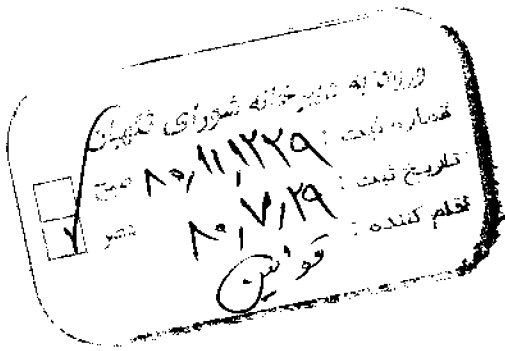 ورود به دبیرخانه شورای نگهبان
شماره ثبت : ۸۰٫۱۱٫۱۲۲۹ صبح
تاریخ ثبت : ۸۰٫۷٫۲۹ عصر
اقدام کننده : قوانین